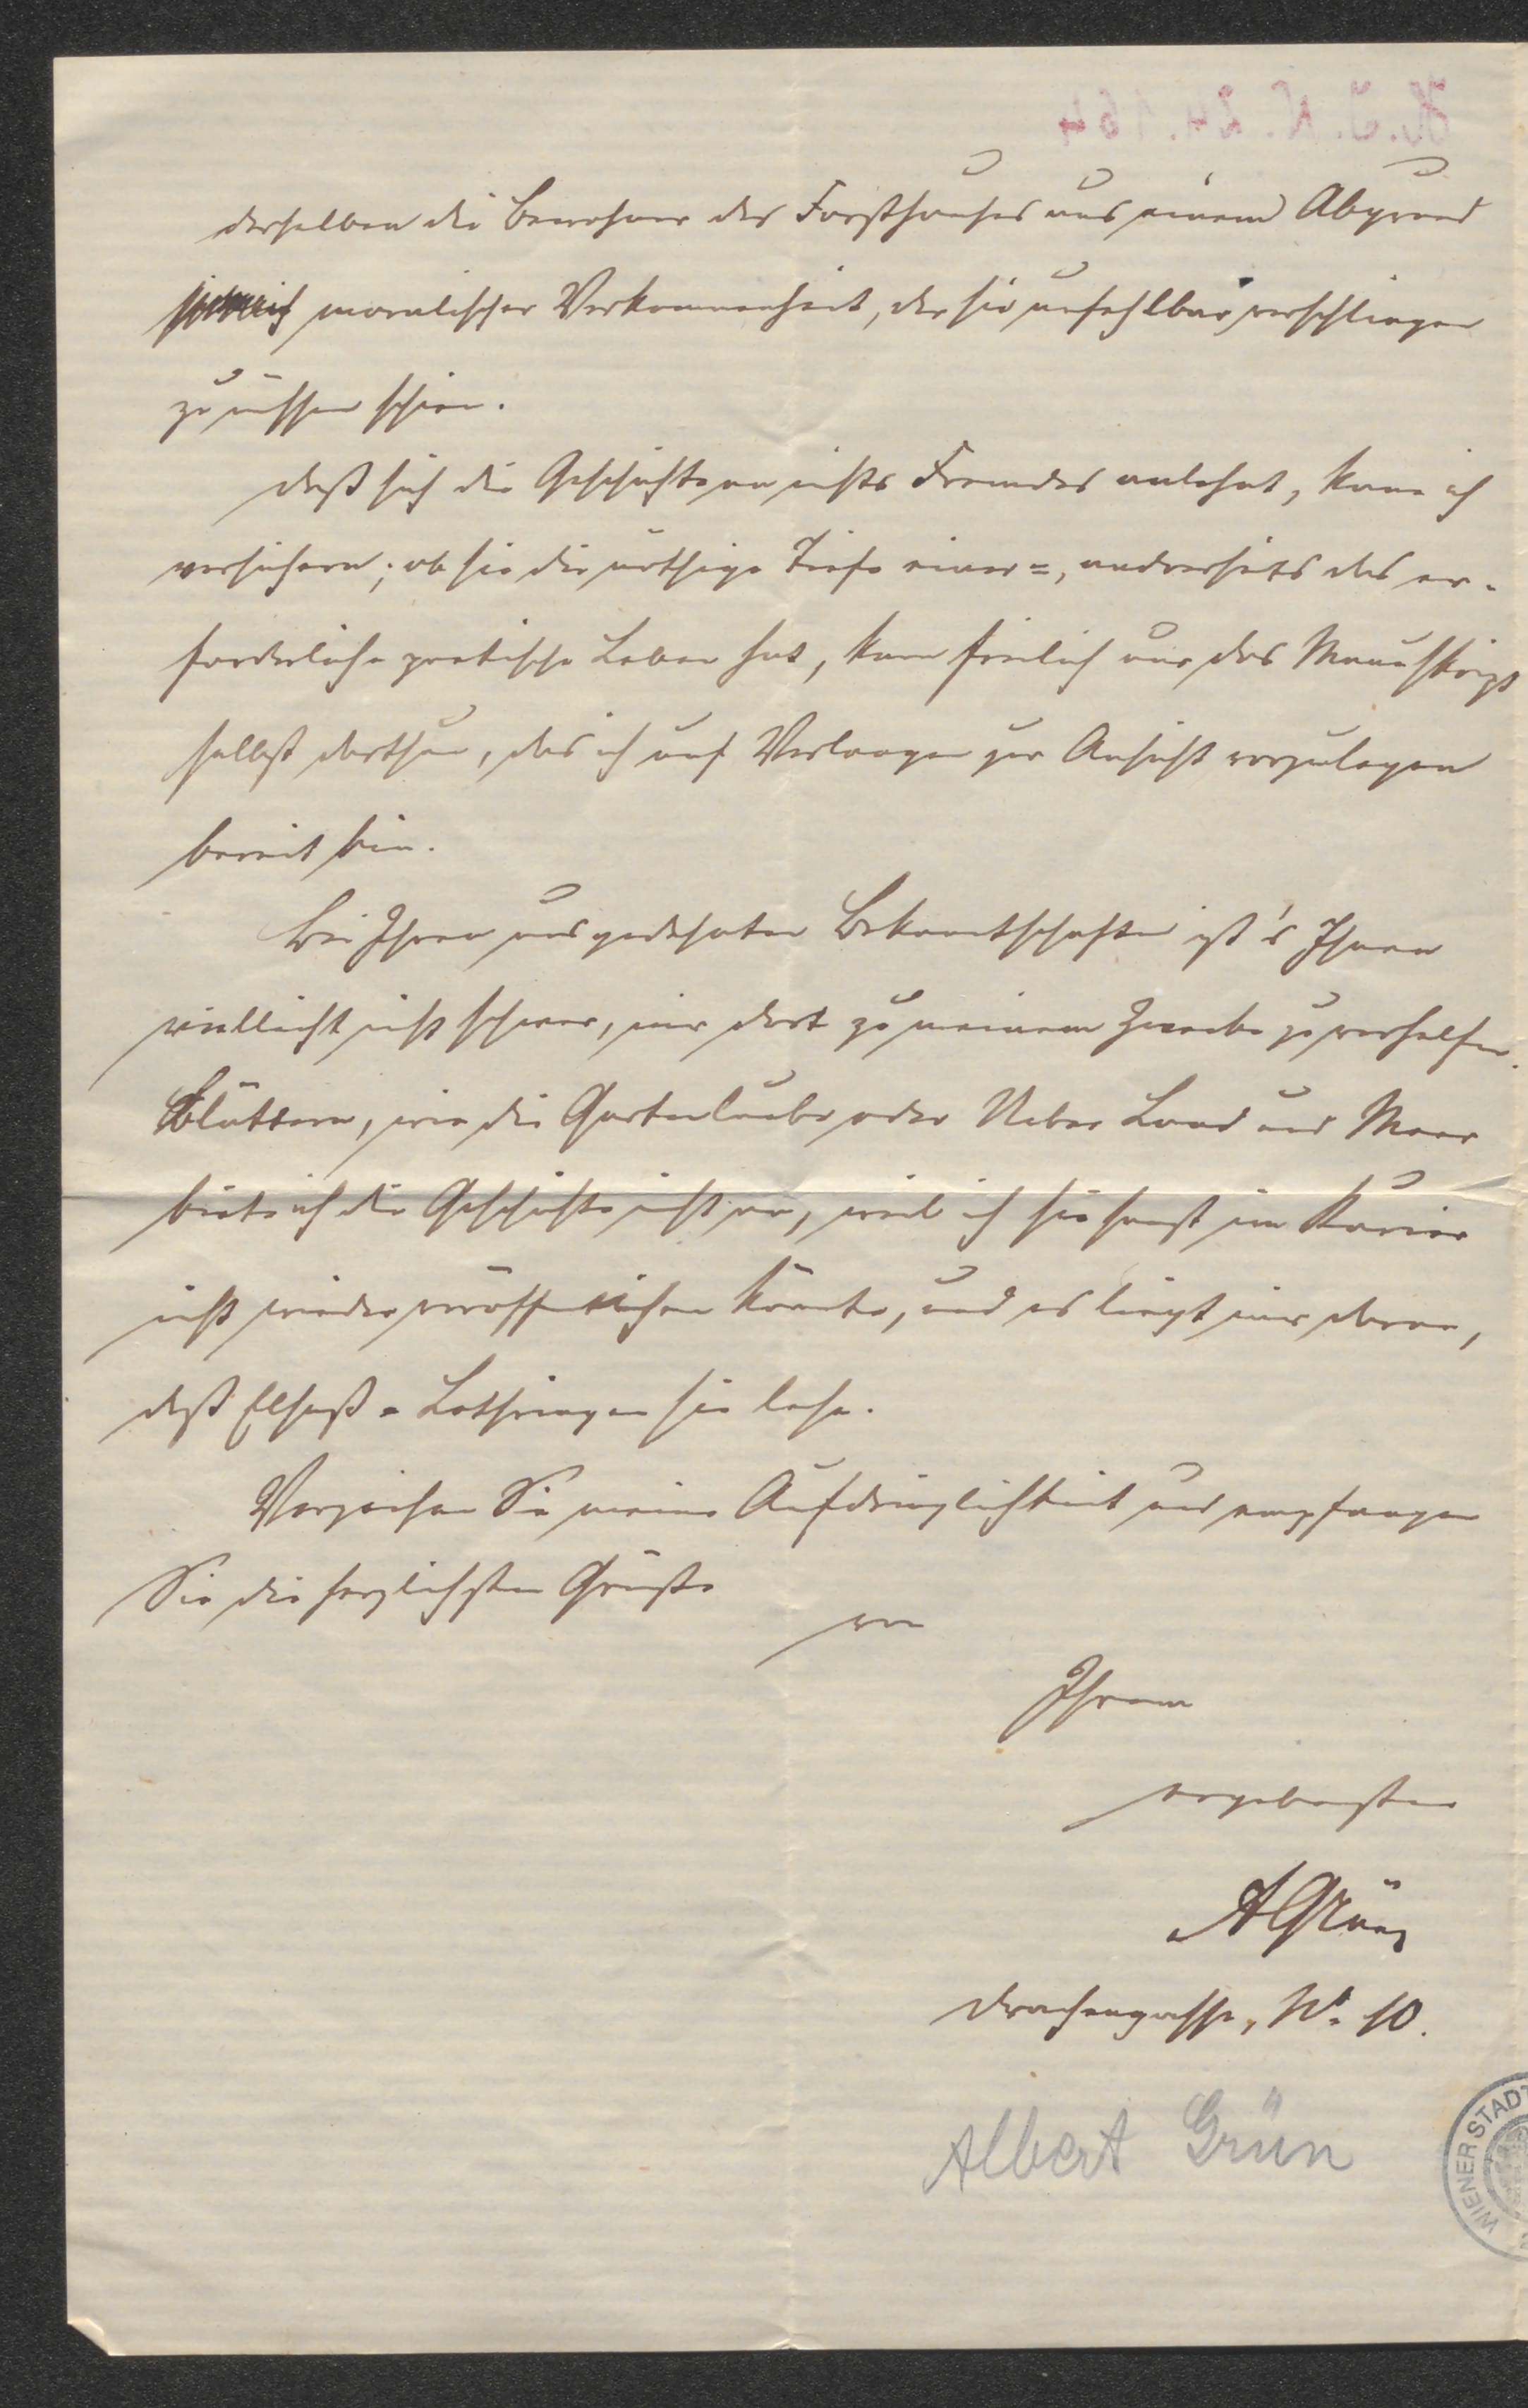 H.I.N. 24.164
derselben die Bewohner des Forsthauses aus einem Abgrund
moralischer Verkommenheit, der sie unfehlbar verschlingen
zu müssen schien.
Daß sich die Geschichte an nichts Fremdes anlehnt, kann ich
versichern; ob sie die nöthige Tiefe einer=, andrerseits das er-
forderliche poetische Leben hat, kann freilich nur das Manuskript
selbst darthun, das ich auf Verlangen zur Ansicht vorzulegen
bereit bin.
Bei Ihren ausgedehnten Bekanntschaften ist's Ihnen
vielleicht nicht schwer, mir dort zu meinem Zwecke zu verhelfen.
Blättern, wie die Gartenlaube oder Ueber Land und Meer
biete ich die Geschichte nicht an, weil ich sie sonst im Kurier
nicht wieder veröffentlichen könnte, und es liegt mir daran,
daß Elsaß-Lothringen sie lese.
Verzeihen Sie meine Aufdringlichkeit und empfangen
Sie die herzlichsten Grüße
von
Ihrem
ergebensten
AGrün
Drachengasse, No. 10.
Albert Grün
WIENER STADT